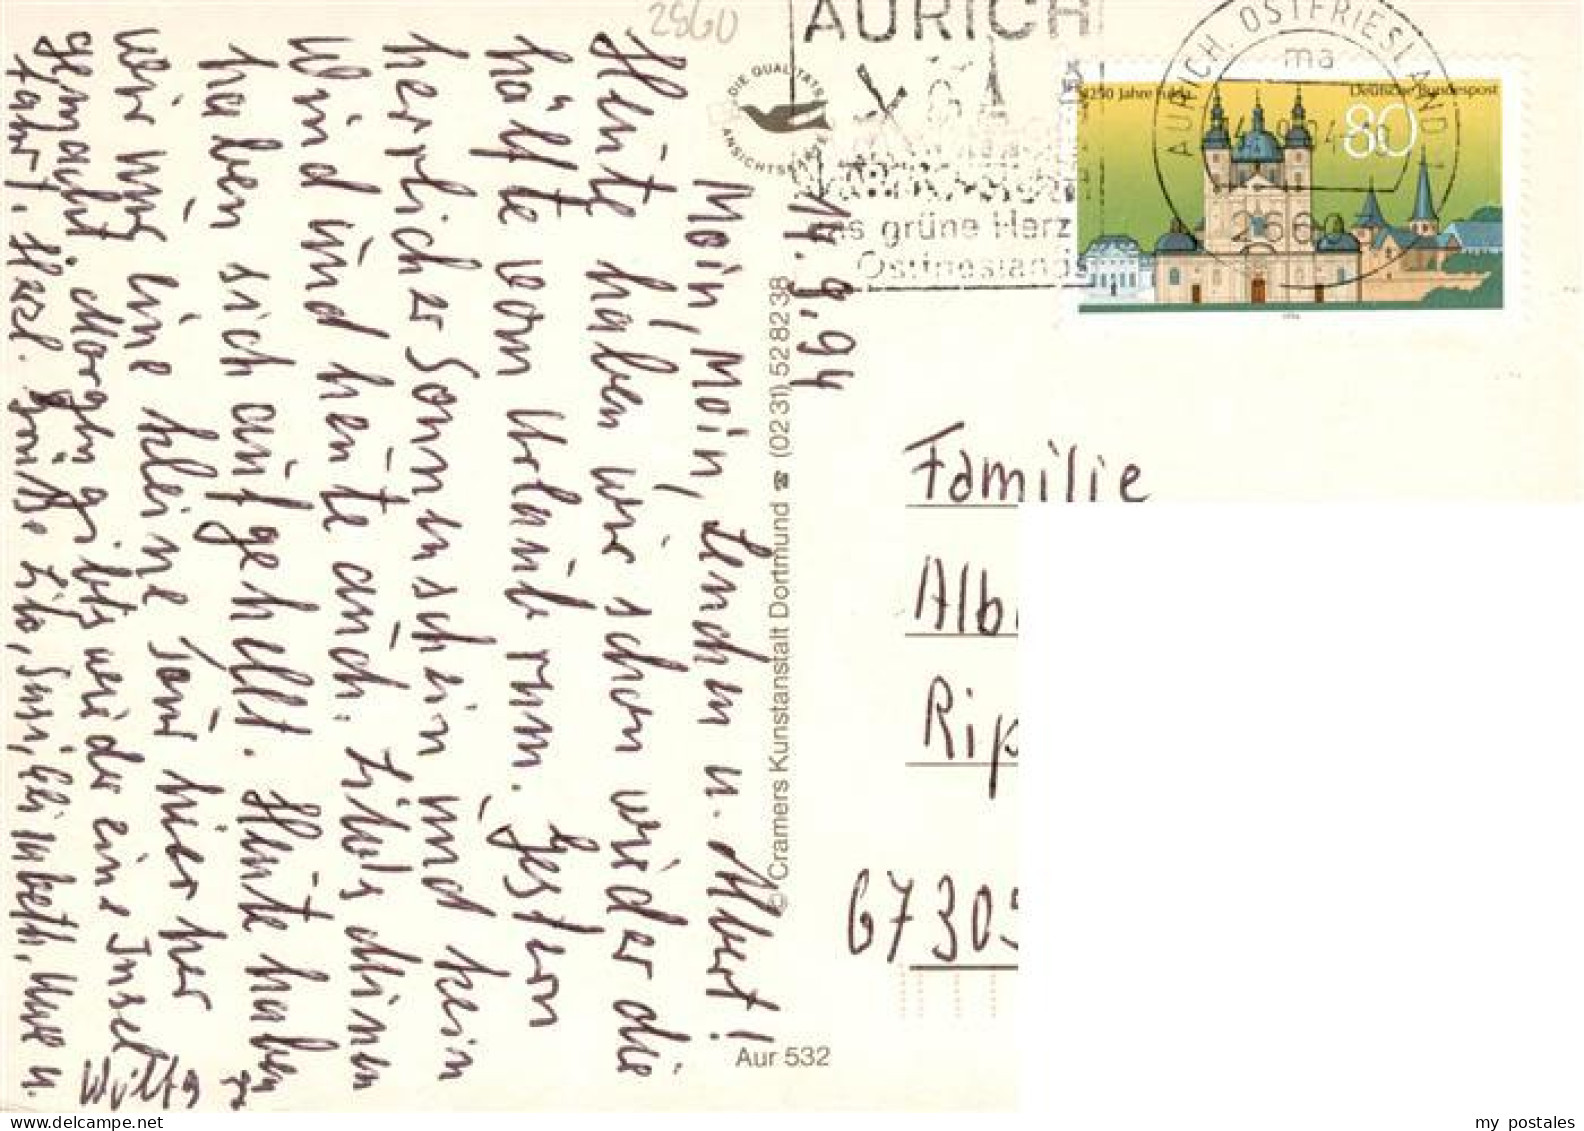 2860
AURICH
das grüne Herz
Ostfrieslands
AURICH, OSTFRIESLAND 1
ma
2660
1250 Jahre Fulda
Deutsche Bundespost
80
1994
DIE QUALITÄTS
ANSICHTSKARTE
14.9.94
Moin, Moin, Lenchen u. Albert!
Heute haben wir schon wieder die
hälfte vom Urlaub rum. Gestern
herrlicher Sonnenschein und kein
Wind und heute auch. Libo's Minen
haben sich aufgehellt. Heute haben
wir uns eine kleine Tour hier her
gemacht Morgen gibts wieder eine Insel
fahrt. Herzl. Grüße Libo, Susi, Elisabeth, Uwe u.
© Cramers Kunstanstalt Dortmund ☎ (02 31) 52 82 38
Aur 532
Familie
Alb
Rip
67305
my postales